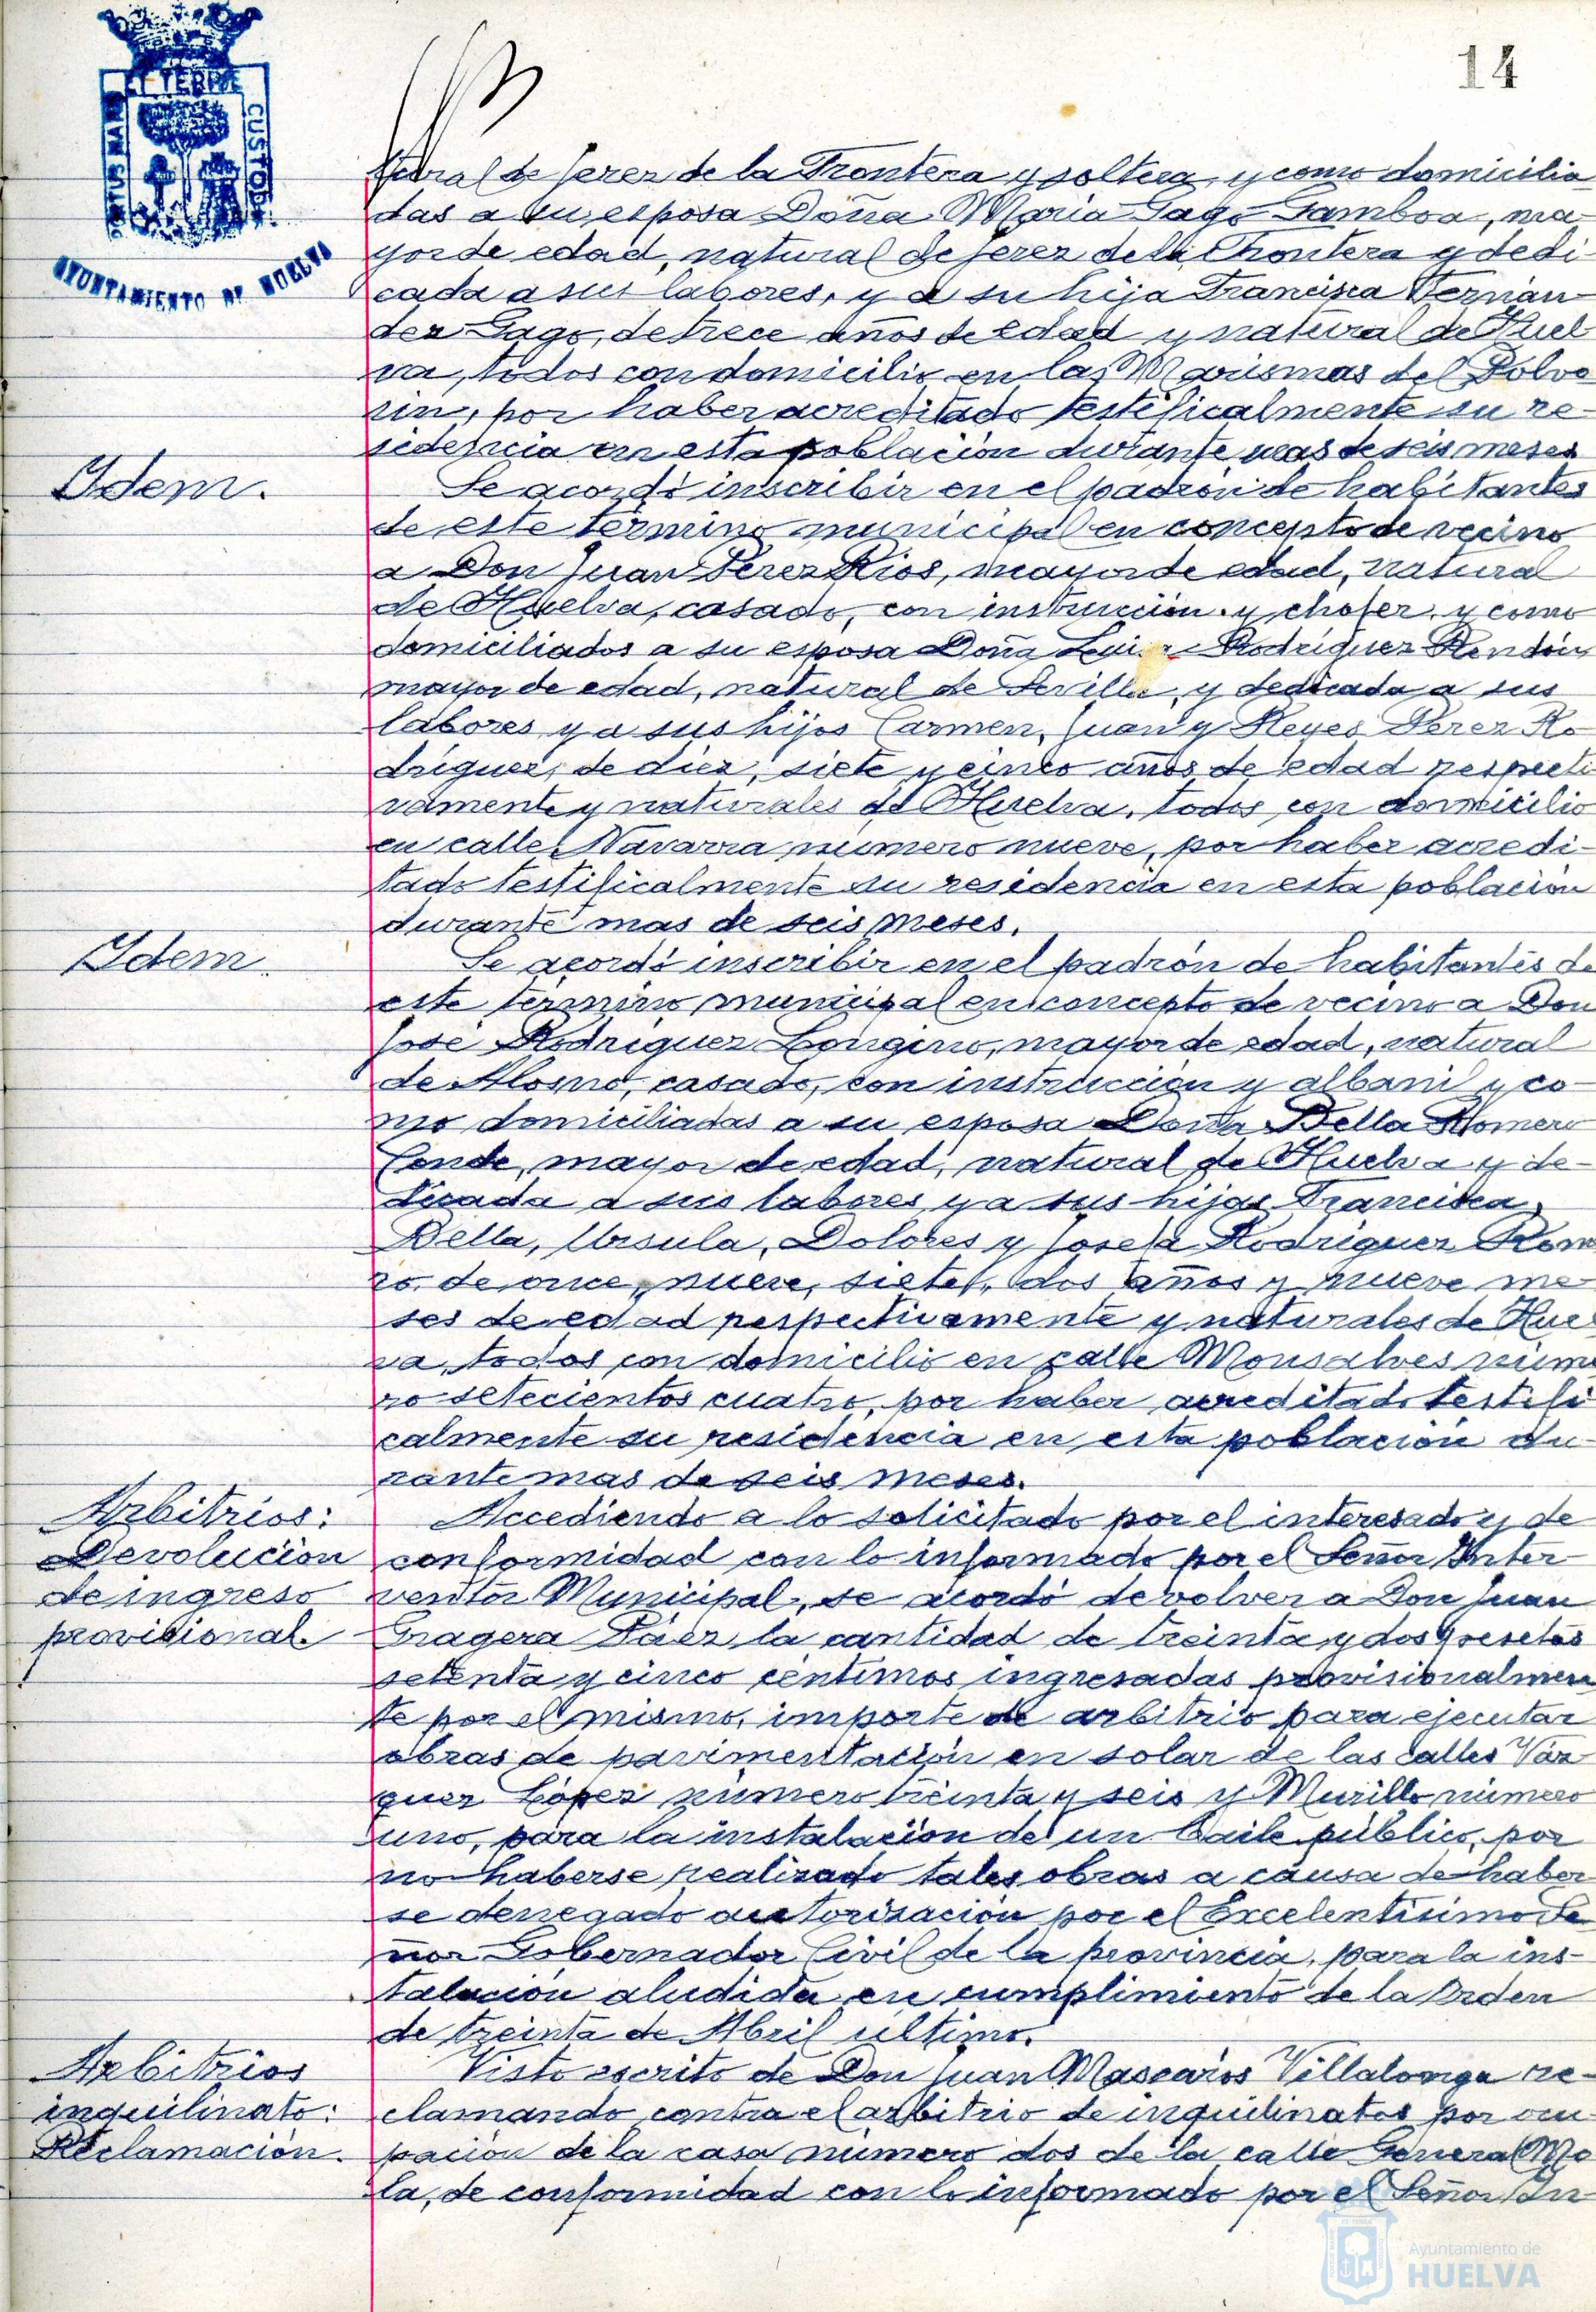 14
ET TERRE
PORTUS MARIS
CUSTODIA
AYUNTAMIENTO DE HUELVA
tural de Jerez de la Frontera y soltera, y como domicilia
das a su esposa Doña Maria Gago Gamboa, ma-
yor de edad, natural de Jerez de la Frontera y dedi-
cada a sus labores, y a su hija Francisca Fernán-
dez Gago, de trece años de edad y natural de Huel
va, todos con domicilio en las Marismas del Polvo
rin, por haber acreditado testificalmente su re-
sidencia en esta población durante mas de seis meses
Idem.
Se acordó inscribir en el padrón de habitantes
de este término municipal en concepto de vecino
a Don Juan Pérez Rios, mayor de edad, natural
de Huelva, casado, con instrucción y chofer, y como
domiciliados a su esposa Doña Luisa Rodríguez Rendón
mayor de edad, natural de Sevilla, y dedicada a sus
labores y a sus hijos Carmen, Juan y Reyes Pérez Ro-
dríguez, de diez, siete y cinco años de edad respecti
vamente y naturales de Huelva, todos con domicilio
en calle Navarra número nueve, por haber acredi-
tado testificalmente su residencia en esta población
durante mas de seis meses.
Idem.
Se acordó inscribir en el padrón de habitantes de
este término municipal en concepto de vecino a Don
José Rodríguez Longino, mayor de edad, natural
de Alosno, casado, con instrucción y albanil y co-
mo domiciliadas a su esposa Doña Bella Romero
Conde, mayor de edad, natural de Huelva y de-
dicada a sus labores y a sus hijas Francisca,
Bella, Ursula, Dolores y Josefa Rodríguez Rome
ro de once, nueve, siete, dos años y nueve me-
ses de edad respectivamente y naturales de Huel
va, todos con domicilio en calle Monsalves núme
ro setecientos cuatro, por haber acreditado testifi
calmente su residencia en esta población du-
rante mas de seis meses.
Arbitrios:
Devolución
de ingreso
provisional.
Accediendo a lo solicitado por el interesado y de
conformidad con lo informado por el Señor Inter-
ventor Municipal, se acordó devolver a Don Juan
Gragera Páez la cantidad de treinta y dos pesetas
setenta y cinco céntimos ingresadas provisionalmen
te por el mismo, importe de arbitrio para ejecutar
obras de pavimentación en solar de las calles Váz
quez López número treinta y seis y Murillo número
uno, para la instalación de un baile público, por
no haberse realizado tales obras a causa de haber
se denegado autorización por el Excelentísimo Se
ñor Gobernador Civil de la provincia, para la ins-
talación aludida en cumplimiento de la Orden
de treinta de Abril último.
Arbitrios
inquilinato:
Reclamación.
Visto escrito de Don Juan Mascarós Villalonga re-
clamando contra el arbitrio de inquilinatos por ocu
pación de la casa número dos de la calle General Mo
la, de conformidad con lo informado por el Señor In-
Ayuntamiento de
HUELVA